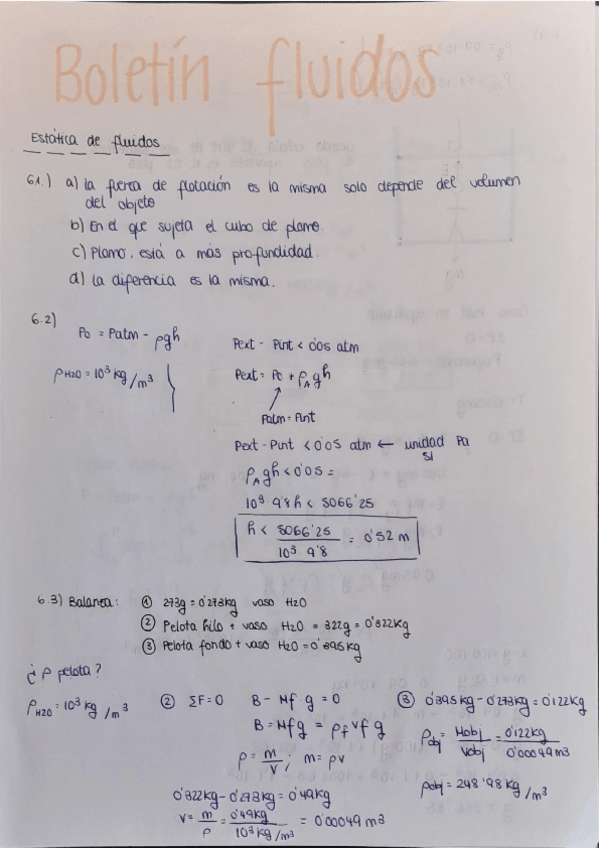 Boletín fluidos
Estática de fluidos
6.1.) a) la fuerza de flotación es la misma solo depende del volumen
del objeto
b) En el que sujeta el cubo de plomo.
c) Plomo. está a más profundidad.
d) la diferencia es la misma.
6.2)
P0 = Patm - ρgh
ρH2O = 10³ kg/m³
Pext - Pint < 0'05 atm
Pext = P0 + ρA gh
Patm = Pint
Pext - Pint < 0'05 atm ← unidad Pa
SI
ρA gh < 0'05 =
10³ 9'8 h < 5066'25
h < 5066'25 / 10³ 9'8 = 0'52 m
6.3) Balanza: ① 273g = 0'273kg vaso H2O
② Pelota hilo + vaso H2O = 322g = 0'322kg
③ Pelota fondo + vaso H2O = 0'395kg
¿ρ pelota?
ρH2O = 10³ kg/m³
② ΣF = 0 B - Mf · g = 0
B = Mf g = ρf Vf g
ρ = m/V ; m = ρV
0'322kg - 0'273kg = 0'49kg
V = m/ρ = 0'49kg / 10³ kg/m³ = 0'00049 m³
③ 0'395kg - 0'273kg = 0'122kg
ρobj = Mobj/Vobj = 0'122kg / 0'00049 m³
ρobj = 248'98 kg/m³